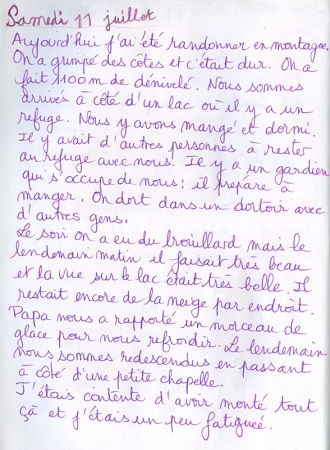 Samedi 11 juillet
Aujourd'hui j'ai été randonner en montagne.
On a grimpé des côtes et c'était dur. On a
fait 1100 m de dénivelé. Nous sommes
arrivés à côté d'un lac où il y a un
refuge. Nous y avons mangé et dormi.
Il y avait d'autres personnes à rester
au refuge avec nous. Il y a un gardien
qui s'occupe de nous : il prépare à
manger. On dort dans un dortoir avec
d'autres gens.
Le soir on a eu du brouillard mais le
lendemain matin il faisait très beau
et la vue sur le lac était très belle. Il
restait encore de la neige par endroit.
Papa nous a rapporté un morceau de
glace pour nous refroidir. Le lendemain
nous sommes redescendus en passant
à côté d'une petite chapelle.
J'étais contente d'avoir monté tout
çà et j'étais un peu fatiguée.